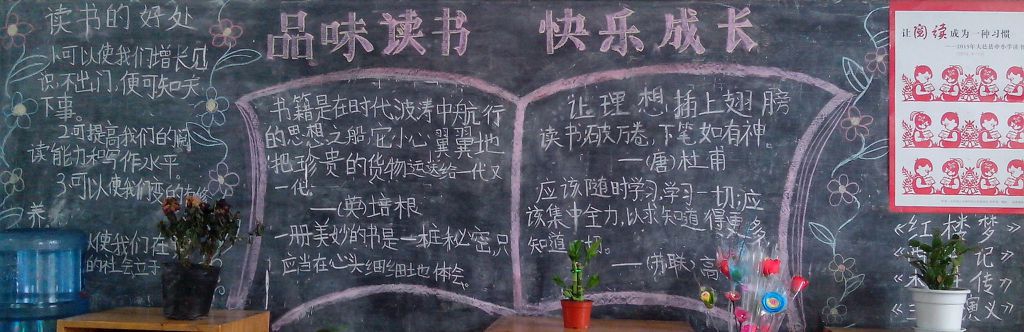 读书的好处
1.可以使我们增长见
识,不出门,便可知天
下事。
2.可提高我们的阅
读能力和写作水平。
3.可以使我们变的有修
养
以使我们在
的社会立于
品味读书 快乐成长
书籍是在时代波涛中航行
的思想之船,它小心翼翼地
把珍贵的货物运送给一代又
一代。
——(英)培根
一册美妙的书是一桩秘密,只
应当在心头细细地体会。
让理想插上翅膀
读书破万卷,下笔如有神。
——(唐)杜甫
应该随时学习,学习一切;应
该集中全力,以求知道得更多,
知道一
——(苏联)高
让阅读成为一种习惯
《红楼梦》
记》
传》
《三 演义》